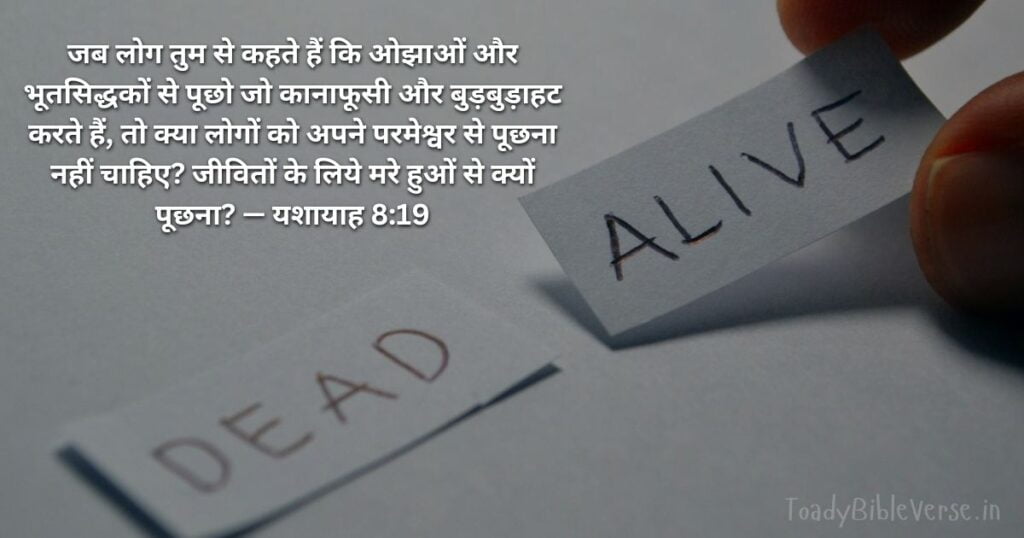 जब लोग तुम से कहते हैं कि ओझाओं और
भूतसिद्धकों से पूछो जो कानाफूसी और बुड़बुड़ाहट
करते हैं, तो क्या लोगों को अपने परमेश्वर से पूछना
नहीं चाहिए? जीवितों के लिये मरे हुओं से क्यों
पूछना? — यशायाह 8:19
ALIVE
DEAD
ToadyBibleVerse.in